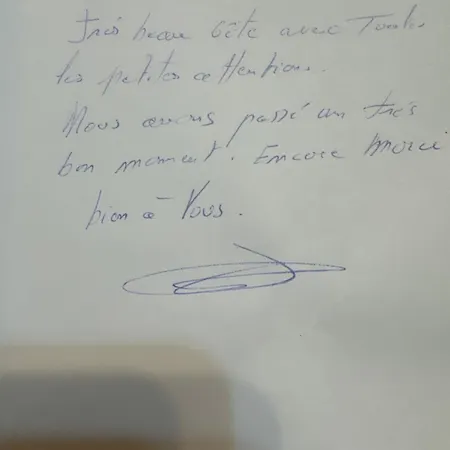 Très beau Gîte avec Toutes
les petites attentions.
Nous avons passé un très
bon moment. Encore merci
bien à Vous.